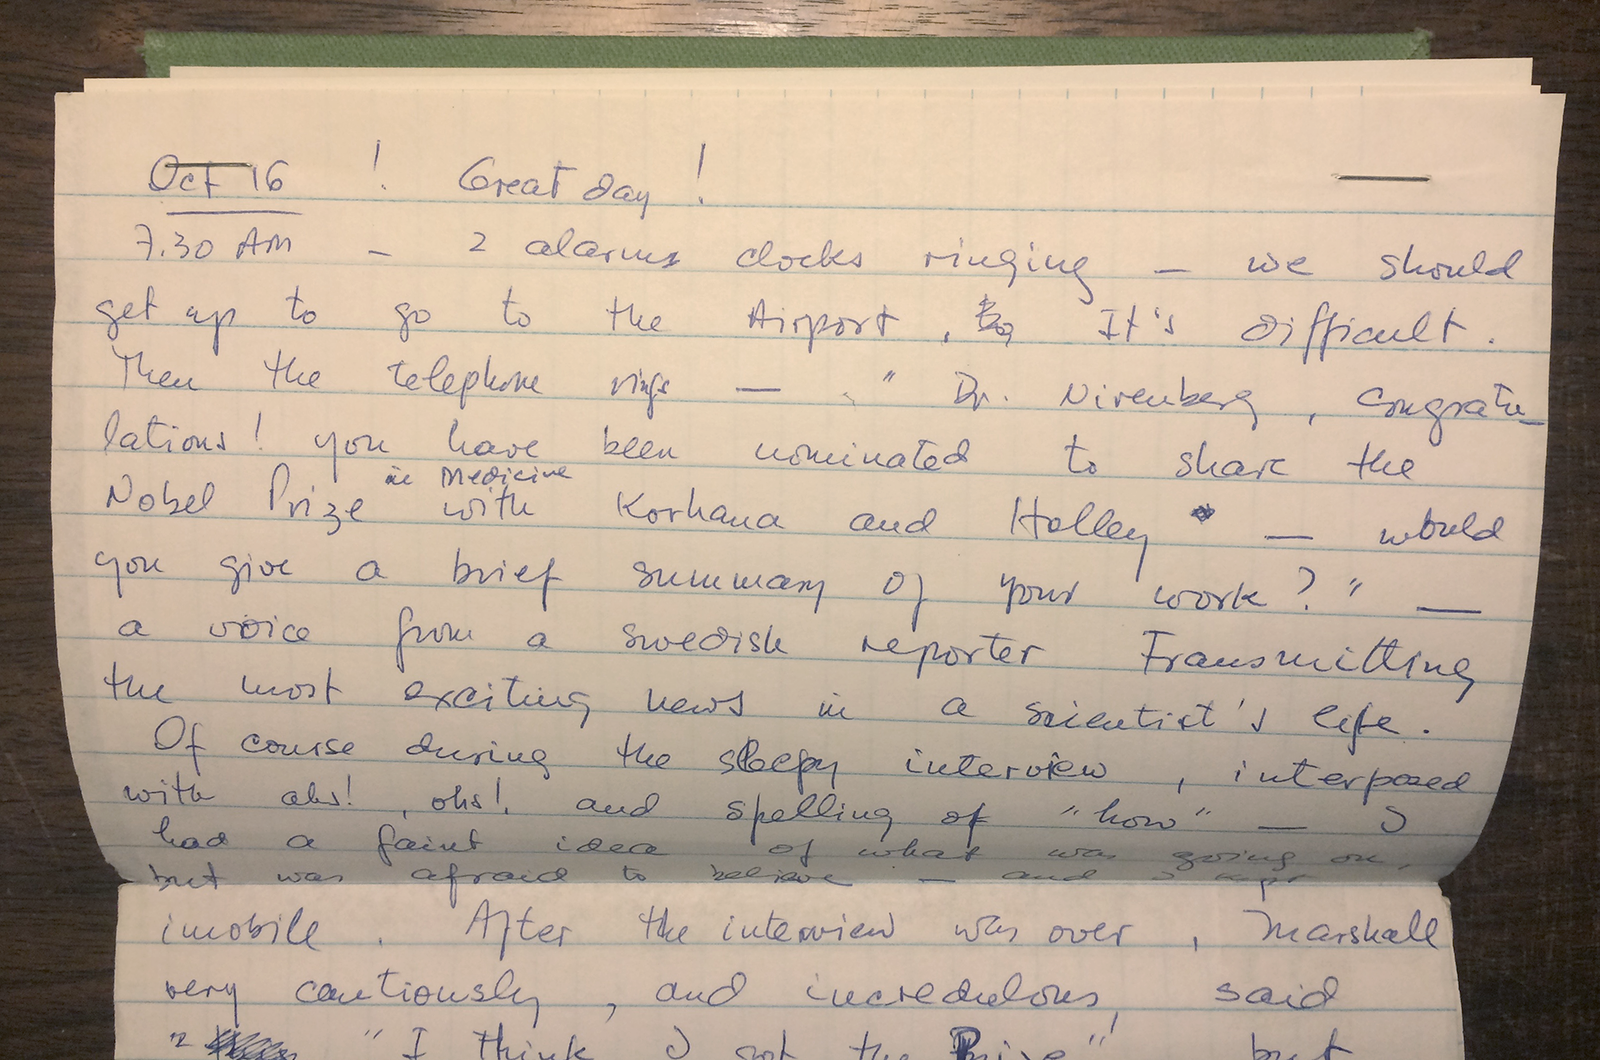 Oct 16 ! Great day !
7.30 AM – 2 alarms clocks ringing – we should
get up to go to the Airport , It's difficult .
Then the telephone rings — " Dr. Nirenberg , congratu_
lations! you have been nominated to share the
in Medicine
Nobel Prize with Korhana and Holley — would
you give a brief summary of your work? " —
a voice from a swedish reporter Transmitting
the most exciting news in a scientist's life .
Of course during the sleepy interview , interposed
with ahs! , ohs!, and spelling of "how" — I
had a faint idea of what was going on,
but was afraid to believe — and I kept
imobile . After the interview was over , Marshall
very cautiously , and incredulous, said
" I think I got the Prize"! but